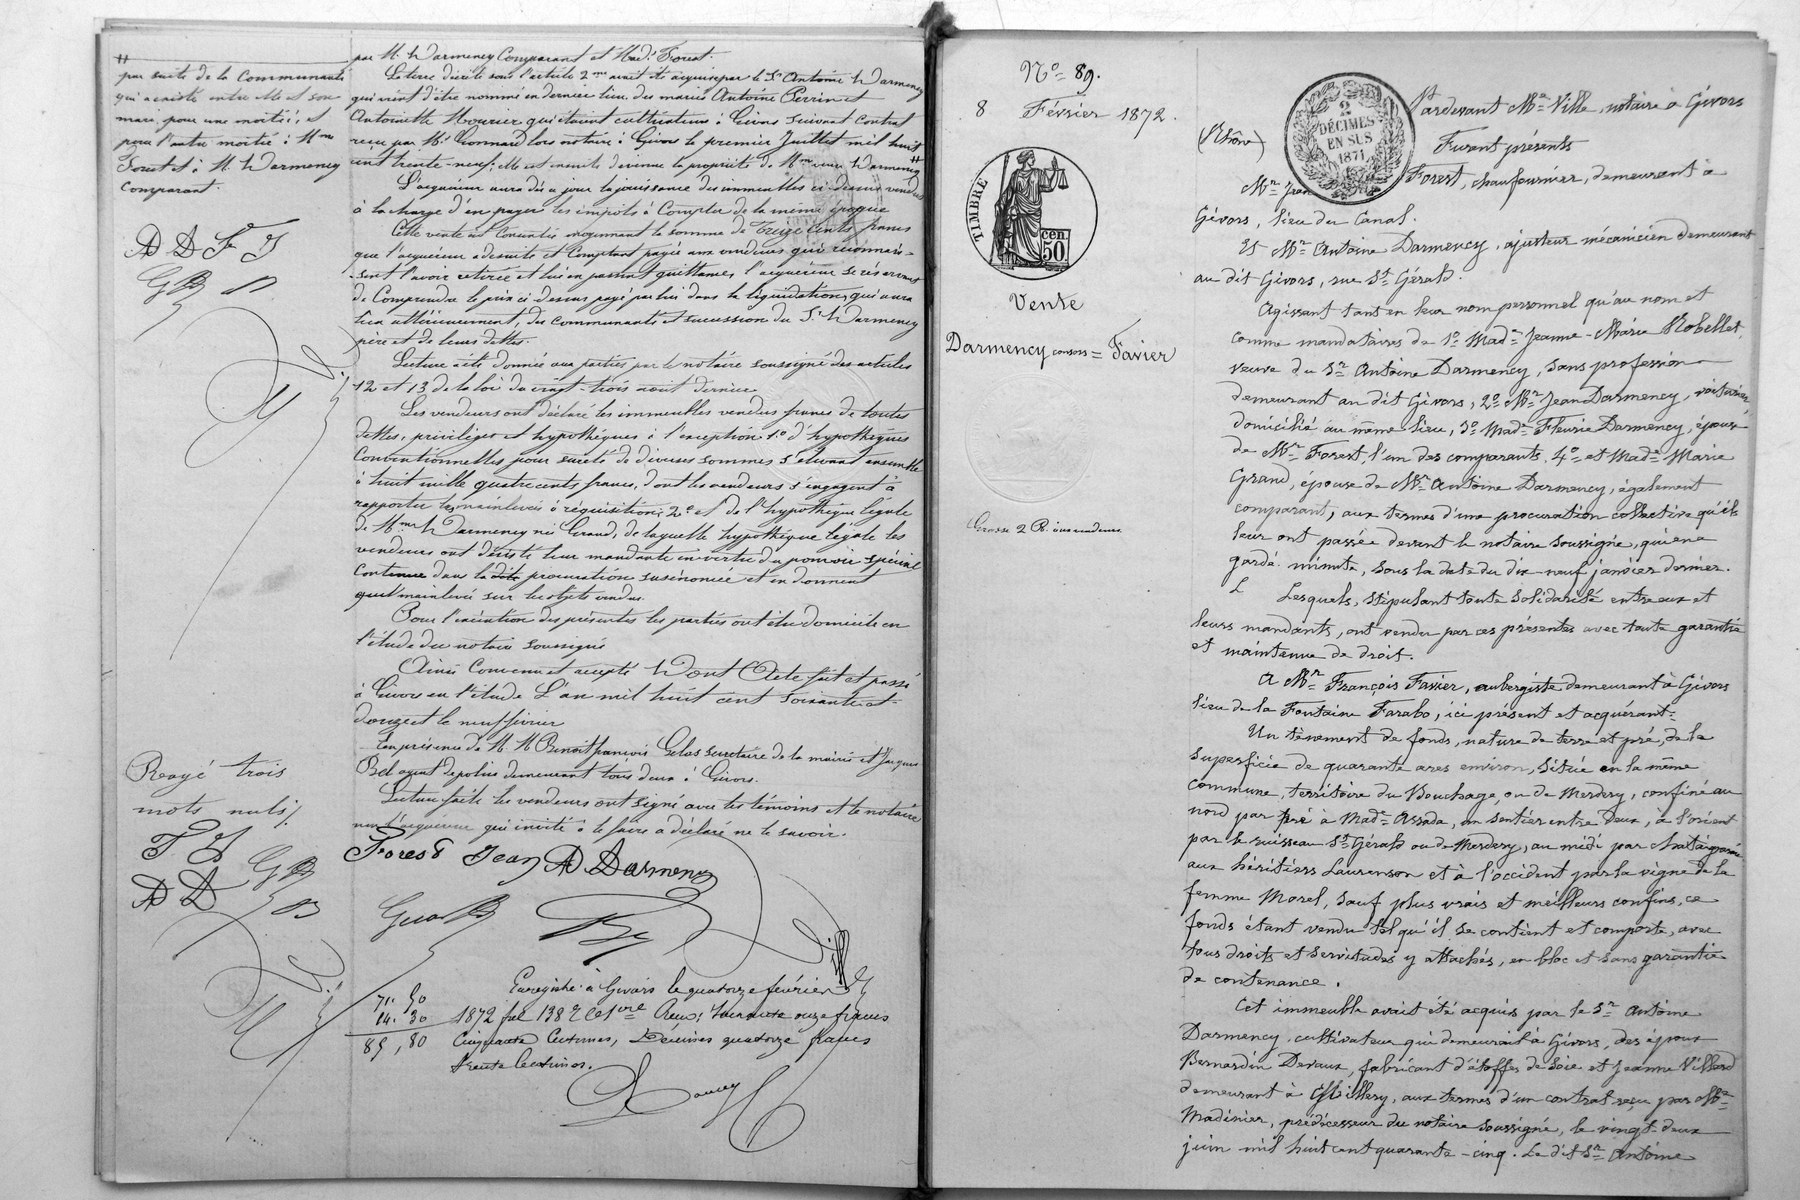 par M. Darmency Comparant et Made Forest.
La terre décrite sous l'article 2me avait été acquise par le Sr Antoine Darmency
qui vient d'être nommé en dernier lieu des mariés Antoine Perrin et
Antoinette Mourier qui étaient cultivateurs à Givors suivant Contrat
reçu par Me lors notaire à Givors le premier Juillet mil huit
cent trente-neuf; elle est ensuite devenue la propriété de Mme veuve Darmency #
#
par suite de la Communauté
qui a existé entre elle et son
mari, pour une moitié; et
pour l'autre moitié à Mme
Forest & à M. Darmency
Comparant.
A D F J
GB
L'acquéreur aura dès ce jour la jouissance des immeubles ci-dessus vendus
à la charge d'en payer les impôts à Compter de la même époque
Cette vente est Consentie moyennant la somme de Treize Cents francs
que l'acquéreur a desuite et Comptant payée aux vendeurs qui reconnais-
sent l'avoir retirée et lui en passent quittance, l'acquéreur se réservant
de Comprendre le prix ci dessus payé par lui dans la liquidation qui aura
lieu ultérieurement, des Communauté et succession du Sr Darmency
père et de leurs dettes.
Lecture a été donnée aux parties par le notaire soussigné des articles
12 et 13 de la loi du vingt-trois août dernier
Les vendeurs ont déclaré les immeubles vendus francs de toutes
dettes, privilèges et hypothèques à l'exception 1o d'hypothèques
Conventionnelles pour sureté de diverses sommes s'élevant ensemble
à huit mille quatre cents francs, dont les vendeurs s'engagent à
rapporter les mainlevées à réquisition; 2o et de l'hypothèque légale
de Mme Darmency née Grand, de laquelle hypothèque légale les
vendeurs ont désisté leur mandante en vertu du pouvoir spécial
Contenu dans la dite procuration susénoncée et en donnent
mainlevée sur les objets vendus.
Pour l'exécution des présentes les parties ont élu domicile en
l'étude du notaire soussigné
Ainsi Convenu et accepté Dont Acte fait et passé
à Givors en l'étude L'an mil huit cent soixante-et-
douze et le neuf février
En présence de M. M Benoit françois Gelas secrétaire de la mairie et Jacques
agent de police demeurant tous deux à Givors.
Lecture faite les vendeurs ont signé avec les témoins et le notaire
non l'acquéreur qui invité à le faire a déclaré ne le savoir.
Rayé trois
mots nuls/.
A D GB
Forest Jean AD Darmency
Enregistré à Givors le quatorze février
1872 fol 138 Reçu: soixante onze francs
Cinquante Centimes, Décimes quatorze francs
trente Centimes.
71. 50
14. 30
85, 80
No 89.
8 Février 1872.
TIMBRE
50 cen
Vente
Darmency consors = Favier
Grosse 2 R. aux vendeurs
2
DÉCIMES
EN SUS
1871
Pardevant Me Ville, notaire à Givors
(Rhône)
Furent présents
Mr Jean Forest, chaufournier, demeurant à
Givors, lieu du Canal.
Et Mr Antoine Darmency, ajusteur mécanicien demeurant
au dit Givors, rue St Gérald.
Agissant tant en leur nom personnel qu'au nom et
comme mandataires de 1o Made Jeanne-Marie Robellet,
veuve du Sr Antoine Darmency, sans profession
demeurant au dit Givors, 2o Mr Jean Darmency, voiturier
domicilié au même lieu, 3o Made Fleurie Darmency, épouse
de Mr Forest, l'un des comparants. 4o et Made Marie
Grand, épouse de Mr Antoine Darmency, également
comparant, aux termes d'une procuration collective qu'ils
leur ont passée devant le notaire soussigné, qui en a
gardé minute, sous la date du dix-neuf janvier dernier.
Lesquels, stipulant toute solidarité entre eux et
leurs mandants, ont vendu par ces présentes avec toute garantie
et maintenue de droit.
A Mr François Favier, aubergiste demeurant à Givors
lieu de la Fontaine Farabo, ici présent et acquérant:
Un tènement de fonds, nature de terre et pré, de la
superficie de quarante ares environ, situé en la même
commune, territoire du Bouchage, ou de Merdery, confiné au
nord par pré à Made Assada, un sentier entre deux, à l'orient
par le ruisseau St Gérald ou de Merdery, au midi par
aux héritiers Laurenson et à l'occident par la vigne de la
femme Morel, sauf plus vrais et meilleurs confins, ce
fonds étant vendu tel qu'il se contient et comporte, avec
tous droits et servitudes y attachés, en bloc et sans garantie
de contenance.
Cet immeuble avait été acquis par le Sr Antoine
Darmency, cultivateur qui demeurait à Givors, des époux
Bernardin Devaux, fabricant d'étoffes de soie et Jeanne Villard
demeurant à Millery, aux termes d'un contrat reçu par Me
Madinier, prédécesseur du notaire soussigné, le vingt-deux
juin mil huit cent quarante-cinq. Le dit Sr Antoine